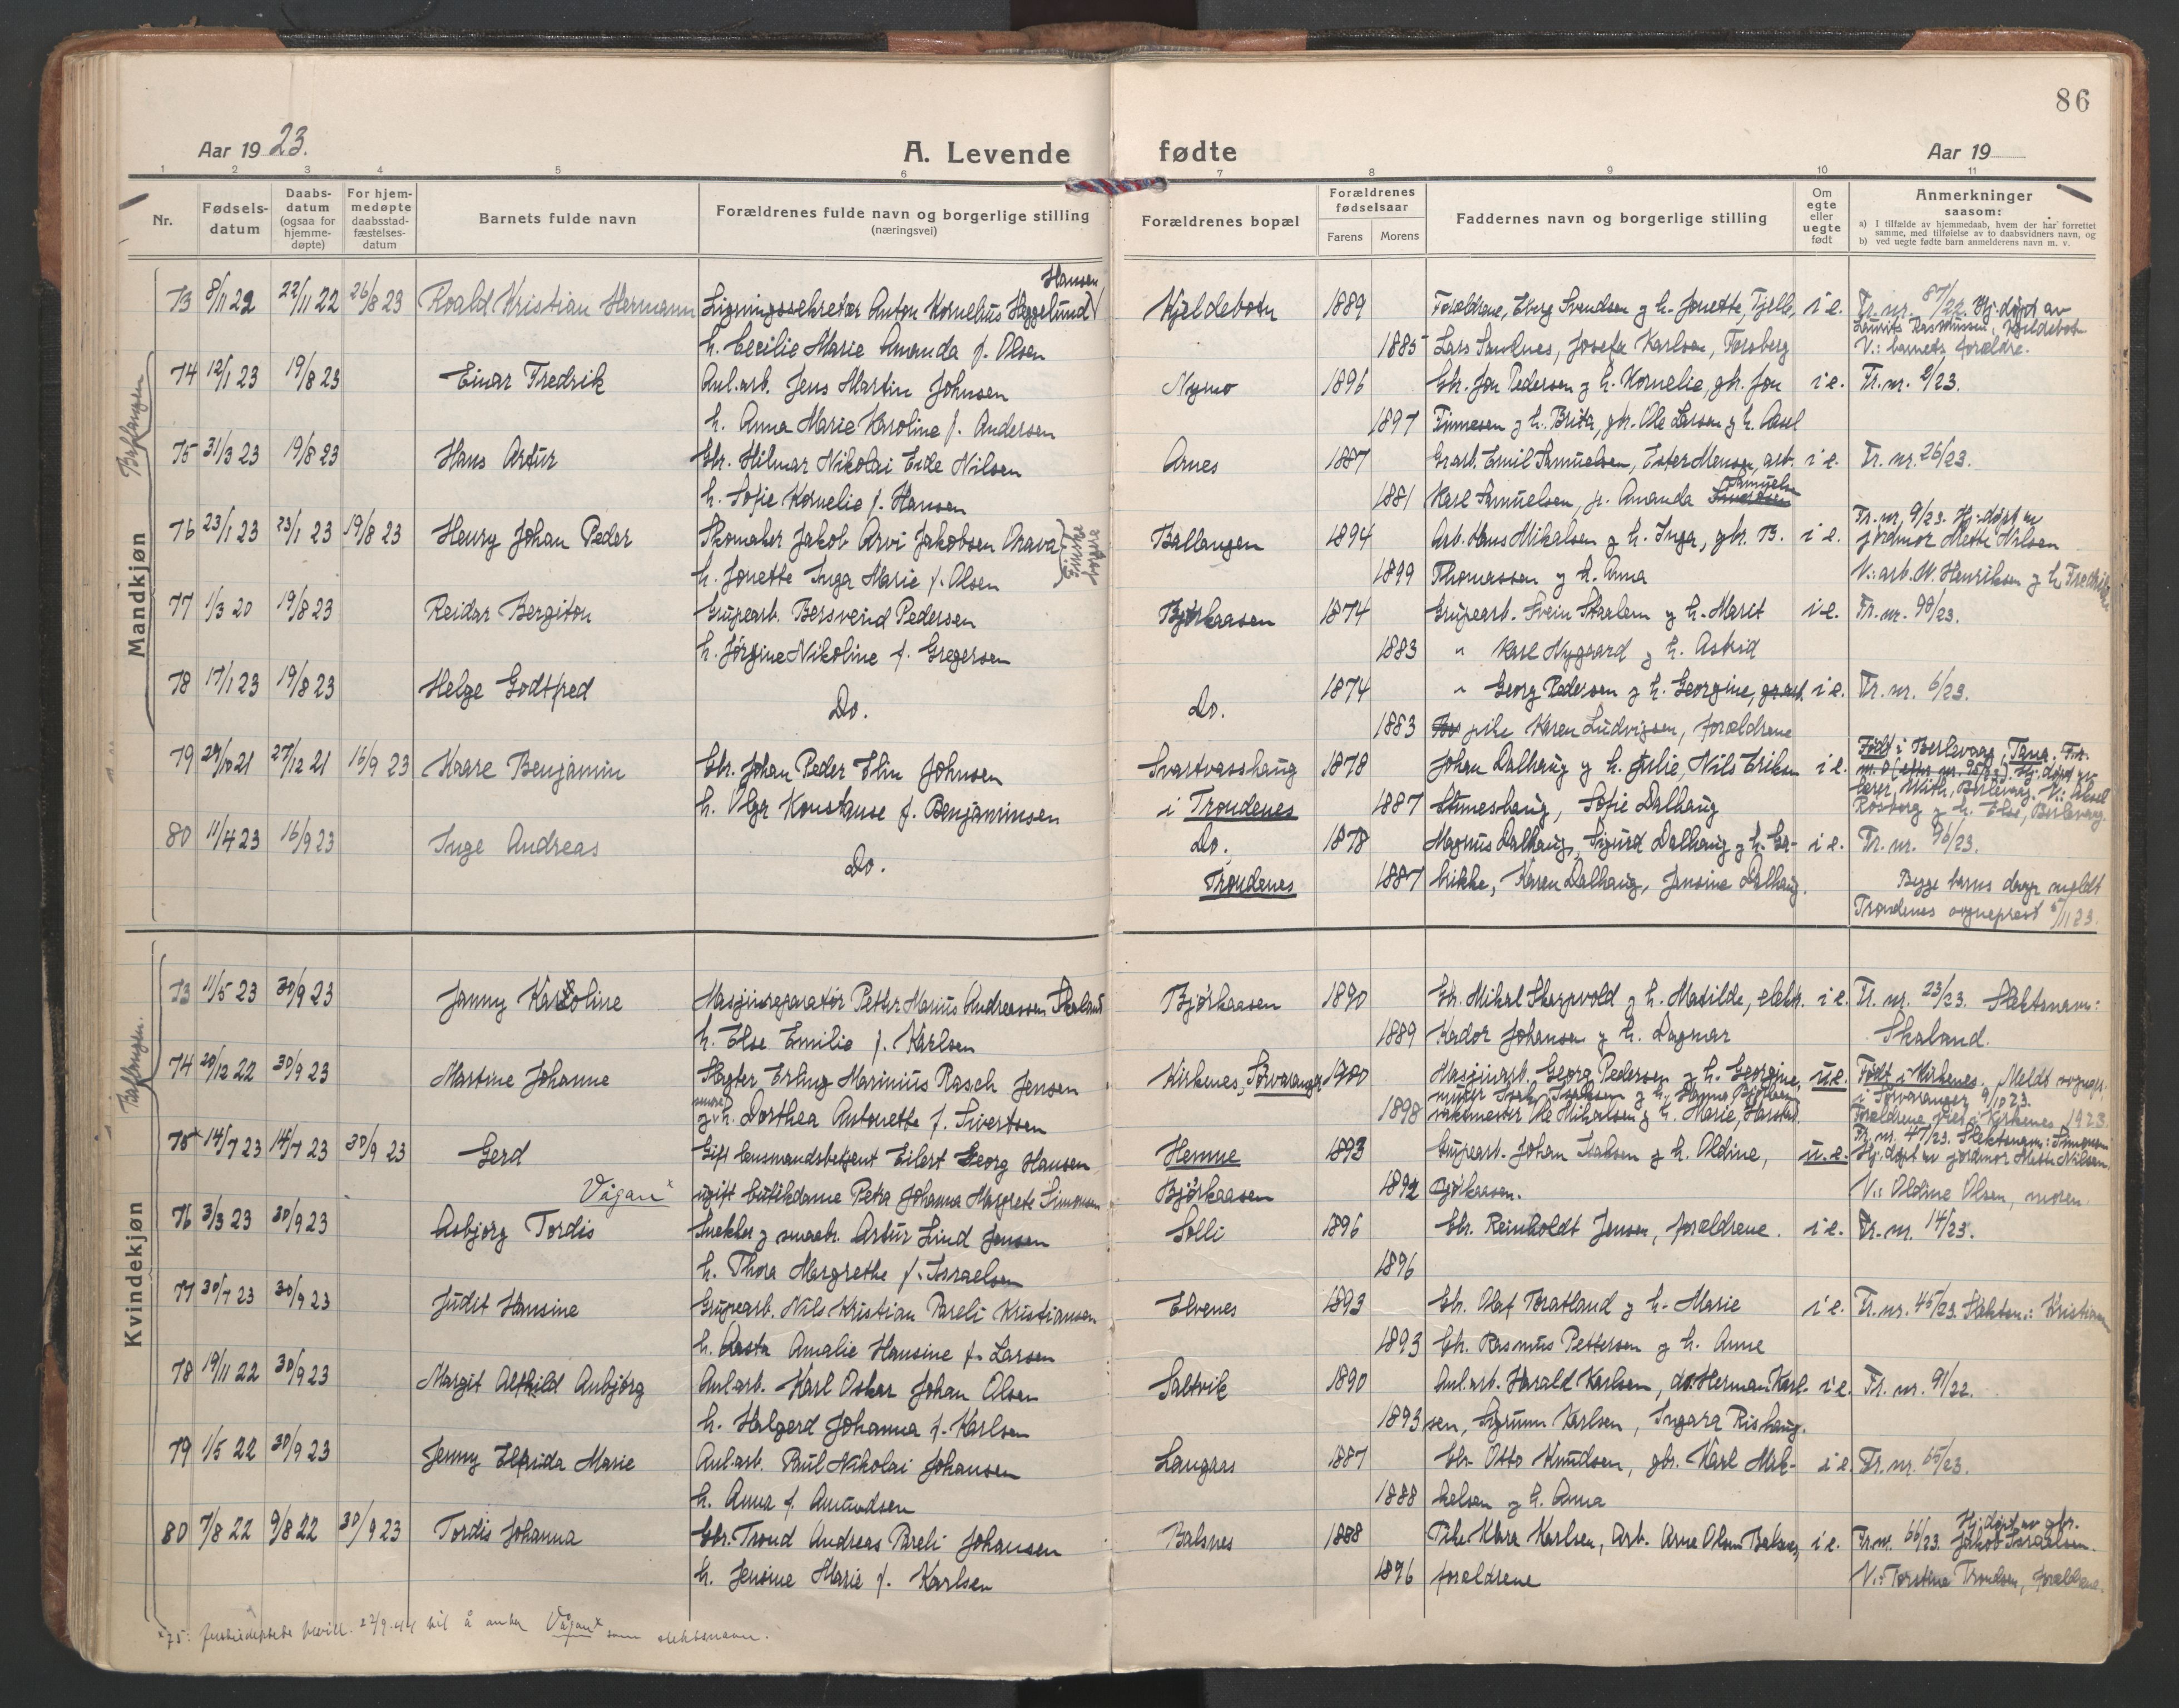 86
Aar 1923.
A. Levende fødte
Aar 19
1 2 3 4 5 6 7 8 9 10 11
Nr.
Fødsels-
datum
Daabs-
datum
(ogsaa for
hjemme-
døpte)
For hjem-
medøpte
daabsstad-
fæstelses-
datum
Barnets fulde navn
Forældrenes fulde navn og borgerlige stilling
(næringsvei)
Forældrenes bopæl
Forældrenes
fødselsaar
Farens Morens
Faddernes navn og borgerlige stilling
Om
egte
eller
uegte
født
Anmerkninger
saasom:
a) I tilfælde av hjemmedaab, hvem der har forrettet
samme, med tilføielse av to daabsvidners navn, og
b) ved uegte fødte barn anmelderens navn m. v.
Mandkjøn
Ballangen
Hansen,
73 8/11 22 22/11 22 26/8 23 Roald Kristian Hermann Ligningssekretær Anton Kornelius Heggelund Kjeldebotn 1889 Forældrene, Eberg Svendsen g h. Jonette, Fjelle, i e. Fr. nr. 87/22. Hj. døpt av
Laurits Rasmussen, Kjeldebotn
h. Cecilie Marie Amanda f. Olsen 1885 Lars Saulnes, Josefa Karlsen, Forsberg V.: barnets forældre.
74 12/1 23 19/8 23 Einar Fredrik Anl.arb. Jens Martin Johnsen Nymo 1896 Gbr. Jon Pedersen g h. Kornelie, gbr. Jon i e. Fr. nr. 2/23.
h. Anna Marie Karoline f. Andersen 1897 Finnesen g h. Brita, gbr. Ole Larsen g h. Aasel
75 31/3 23 19/8 23 Hans Artur Gbr. Hilmar Nikolai Eide Nilsen Arnes 1887 Gr.arb. Emil Samuelsen, Ester Monsen, arb. i e. Fr. nr. 26/23.
h. Sofie Kornelie f. Hansen 1881 Karl Samuelsen, p. Amanda Samuels.
76 23/1 23 23/1 23 19/8 23 Henry Johan Peder Skomaker Jakob Arvi Jakobsen Arava Ballangen 1894 Arb. Hans Mikalsen g h. Inga, gbr. B. i e. Fr. nr. 9/23. Hj. døpt av
jordmor Mette Nilsen
Finske borgere
h. Jonette Inga Marie f. Olsen 1899 Thomassen g h. Anna V.: arb. N. Henriksen g h. Fredrikke
77 1/3 20 19/8 23 Reidar Bergiton Grupearb. Bersvend Pedersen Bjørkaasen 1874 Grupearb. Svein Staalem g h. Marit i e. Fr. nr. 90/23.
h. Jørgine Nikoline f. Gregersen 1883 " Karl Nygaard g h. Astrid
78 17/1 23 19/8 23 Helge Godtfred Do. Do. 1874 " Georg Pedersen g h. Georgine, i e. Fr. nr. 6/23.
1883 pike Karen Ludvigsen, forældrene
79 29/10 21 27/12 21 16/9 23 Kaare Benjamin Gbr. Johan Peder Elin Johnsen Svartvasshaug 1878 Johan Dalhaug g h. Julie, Nils Eriksen i e. Født i Berlevaag, Tana. Fr.
nr. 0 (efter nr. 95/23). Hj. døpt av
h. Olga Konstanse f. Benjaminsen i Trondenes 1887 Stuneshaug, Sofie Dalhaug lærer With, Berlevaag. V.: Aksel
Rosberg g h. Else, Berlevaag.
80 11/4 23 16/9 23 Inge Andreas Do. Do. 1878 Magnus Dalhaug, Sigurd Dalhaug g h. Ca- i e. Fr. nr. 96/23.
Trondenes 1887 trikke, Karen Dalhaug, Jensine Dalhaug. Begge barns daap meldt
Trondenes sogneprest 5/11 23.
Kvindekjøn
Ballangen.
73 11/5 23 30/9 23 Janny Karoline Masjinreparatør Petter Marius Andreassen Skaland Bjørkaasen 1890 Gbr. Mikal Skarpvold g h. Matilde, elektr. i e. Fr. nr. 23/23. Slektsnavn:
h. Else Emilie f. Karlsen 1889 Kador Johansen g h. Dagmar Skaland.
74 20/12 22 30/9 23 Martine Johanne Slagter Erling Marinius Rasch Jensen Kirkenes, Sørvaranger 1900 Masjinarb. Georg Pedersen g h. Georgine, u.e. Født i Kirkenes. Meldt sognepr.
i Sørvaranger 9/10 23.
senere g. h. Dorthea Antonette f. Sivertsen 1898 vaktmester Ole Mikalsen g h. Marie, Harstad. Forældrene viet i Kirkenes 1923.
75x 14/7 23 14/7 23 30/9 23 Gerd Gift lensmandsbetjent Eilert Georg Hansen Hemne 1893 Grupearb. Johan Isaksen g h. Oldine, u.e. Fr. nr. 47/23. Slektsnavn: Simonsen
Hj. døpt av jordmor Mette Nilsen.
Vågan x ugift butikdame Petra Johanna Margrete Simonsen Bjørkaasen 1892 Bjørkaasen. V.: Oldine Olsen, moren.
76 3/3 23 30/9 23 Asbjørg Tordis Snekker g smaabr. Artur Lind Jensen Solli 1896 Gbr. Reinholdt Jensen, forældrene. i e. Fr. nr. 14/23.
h. Thora Margrethe f. Israelsen 1896
77 30/7 23 30/9 23 Judit Hansine Grupearb. Nils Kristian Pareli Kristiansen Elvenes 1893 Gbr. Olaf Bratland g h. Marie i e. Fr. nr. 45/23. Slektsn.: Kristiansen
h. Aasta Amalie Hansine f. Larsen 1893 Gbr. Rasmus Pettersen g h. Anne
78 19/11 22 30/9 23 Margit Alfhild Anbjørg Anl.arb. Karl Oskar Johan Olsen Saltvik 1890 Anl.arb. Harald Karlsen, do. Herman Karl- i e. Fr. nr. 91/22.
h. Halgerd Johanna f. Karlsen 1893 sen, Sigrunn Karlsen, Ingara Rishaug.
79 1/5 22 30/9 23 Jenny Elfrida Marie Anl.arb. Paul Nikolai Johansen Langaas 1887 Gbr. Otto Knudsen, gbr. Karl Mik- i e. Fr. nr. 65/23.
h. Anna f. Amundsen 1888 kelsen g h. Anna
80 7/8 22 9/8 22 30/9 23 Tordis Johanna Gbr. Trond Andreas Pareli Johansen Balsnes 1888 Pike Klara Karlsen, Arb. Arne Olsen Balsnes, i e. Fr. nr. 66/23. Hj. døpt av gbr.
Jakob Israelsen.
h. Jensine Marie f. Karlsen 1896 forældrene V.: Torstina Trondsen, forældrene.
x 75: Justisdeptets bevill. 27/9-44 til å anta Vågan x som slektsnavn.